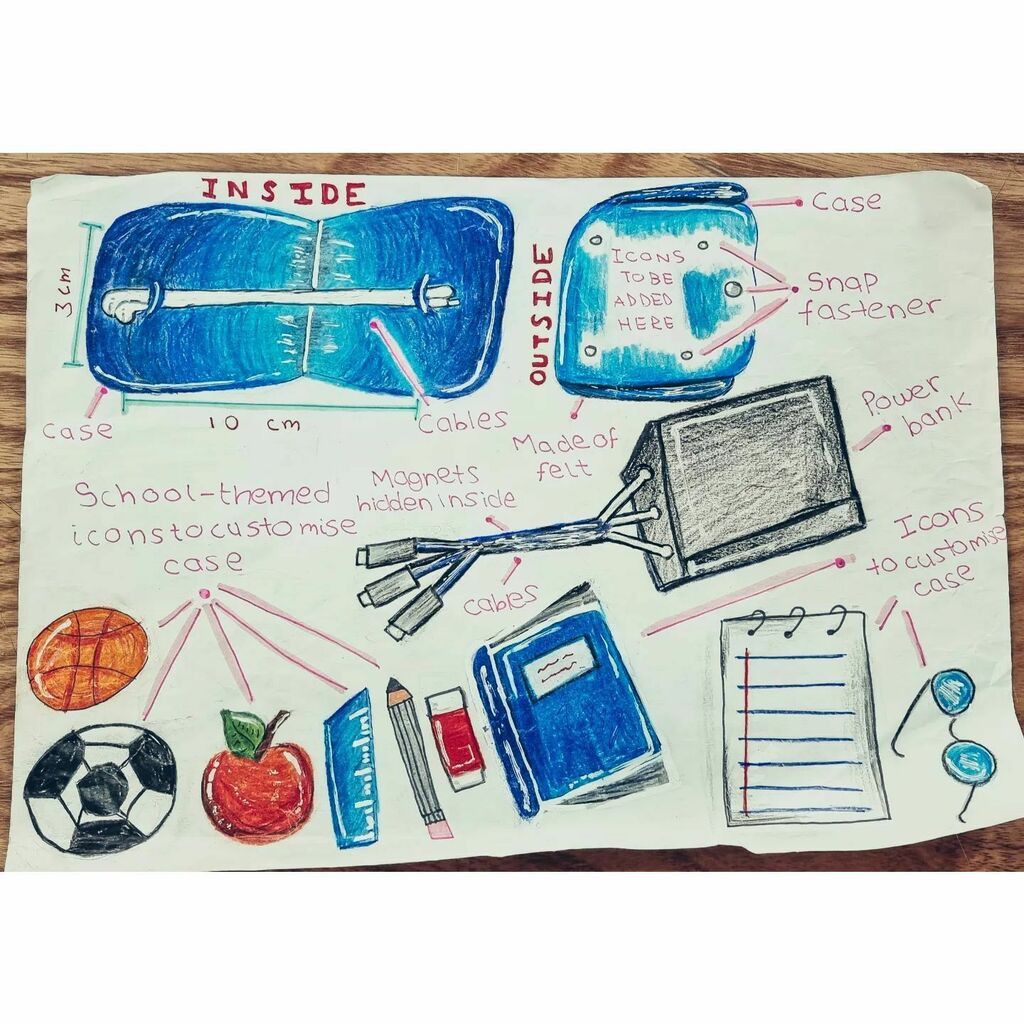 INSIDE
3cm
case
10 cm
Cables
OUTSIDE
ICONS
TO BE
ADDED
HERE
Case
Snap
fastener
Made of
felt
Power
bank
Magnets
hidden inside
cables
School-themed
icons to customise
case
Icons
to customise
case